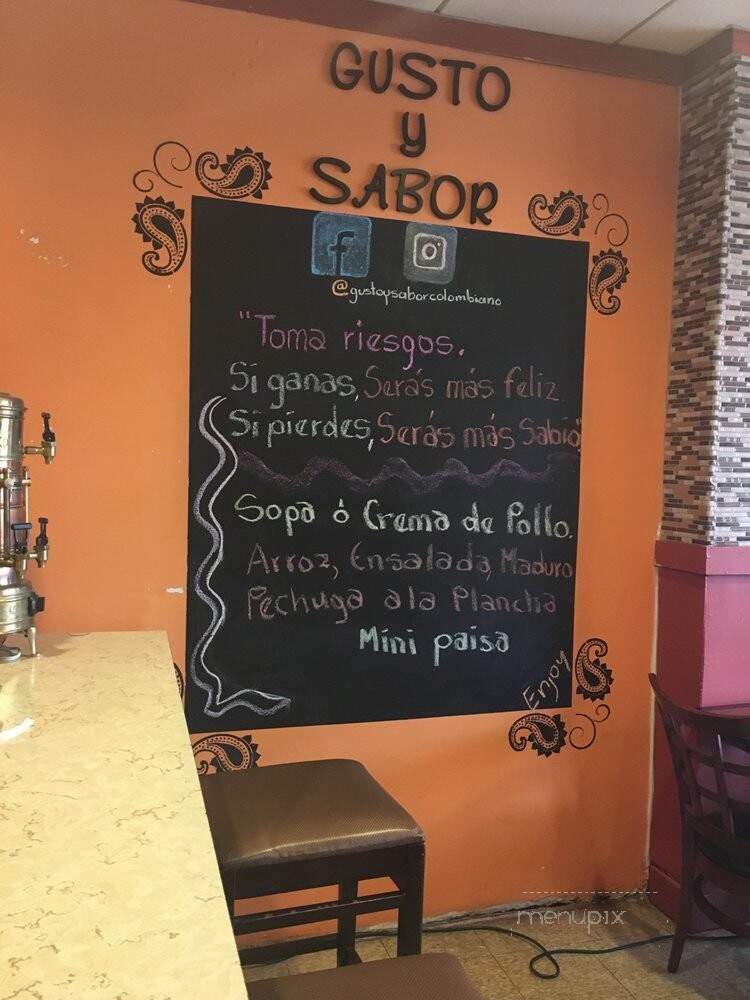 GUSTO
y
SABOR
f
@gustoysaborcolombiano
"Toma riesgos.
Si ganas, Serás más feliz
Si pierdes, Serás más Sabio"
Sopa ó Crema de Pollo.
Arroz, Ensalada, Maduro
Pechuga a la Plancha
Mini paisa
Enjoy
menupix